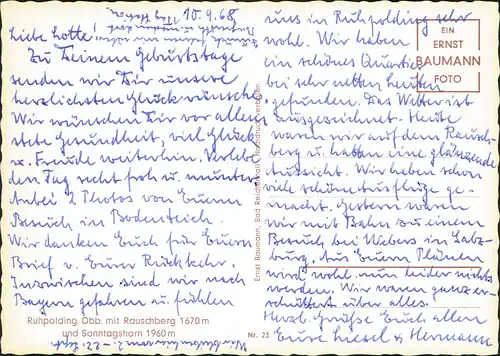 10.9.68
Liebe Lotte.
Zu Deinem Geburtstage
senden wir Dir unsere
herzlichsten Glückwünsche.
Wir wünschen Dir vor allem
stete Gesundheit, viel Glück
u. Freude weiterhin. Verlebe
den Tag recht froh u. munter
Anbei 2 Photos von Euerm
Besuch in Bodenteich.
Wir danken Euch für Euern
Brief v. Eurer Rückkehr.
Inzwischen sind wir nach
Bayern gefahren u. fühlen
uns in Ruhpolding sehr
wohl. Wir haben
ein schönes Quartier
bei sehr netten Leuten
gefunden. Das Wetter ist
ausgezeichnet. Heute
waren wir auf dem Rausch-
berg u. hatten eine glänzende
Aussicht. Wir haben schon
viele schöne Ausflüge ge-
macht. Gestern waren
wir mit Bahn zu einem
Besuch bei Webers in Salz-
burg. Aus Euern Plänen
wird wohl nun leider nichts
werden. Wir waren ganz er-
schüttert über alles.
Herzl. Grüße Euch allen
Eure Liesel u. Hermann
EIN
ERNST
BAUMANN
FOTO
Ernst Baumann, Bad Reichenhall
Ruhpolding Obb. mit Rauschberg 1670 m
und Sonntagshorn 1960 m
Nr. 23